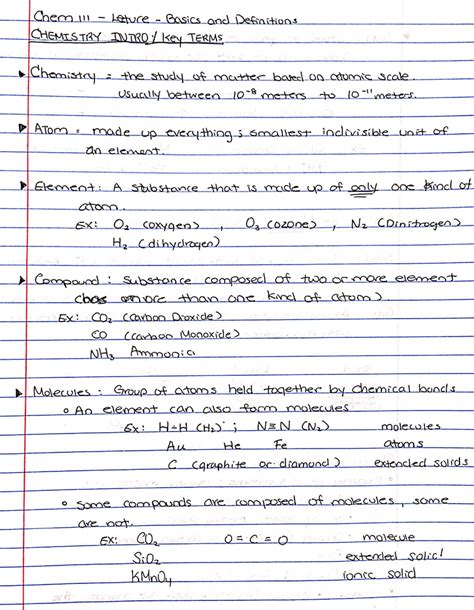 Chem 111 - Leture - Basics and Definitions
CHEMISTRY INTRO / Key TERMS
▸ Chemistry = the study of matter based on atomic scale.
Usually between 10⁻⁸ meters to 10⁻¹¹ meters.
▸ Atom = made up everything; smallest indivisible unit of
an element.
▸ Element: A substance that is made up of only one kind of
atom.
Ex: O₂ (oxygen) , O₃ (ozone) , N₂ (Dinitrogen)
H₂ (dihydrogen)
▸ Compound: Substance composed of two or more element
(has more than one kind of atom)
Ex: CO₂ (Carbon Dioxide)
CO (Carbon Monoxide)
NH₃ Ammonia
▸ Molecules: Group of atoms held together by chemical bonds
○ An element can also form molecules
Ex: H-H (H₂) ; N≡N (N₂) molecules
Au He Fe atoms
C (graphite or diamond) extended solids
○ Some compounds are composed of molecules, some
are not.
Ex: CO₂ O=C=O molecule
SiO₂ extended solid
KMnO₄ ionic solid